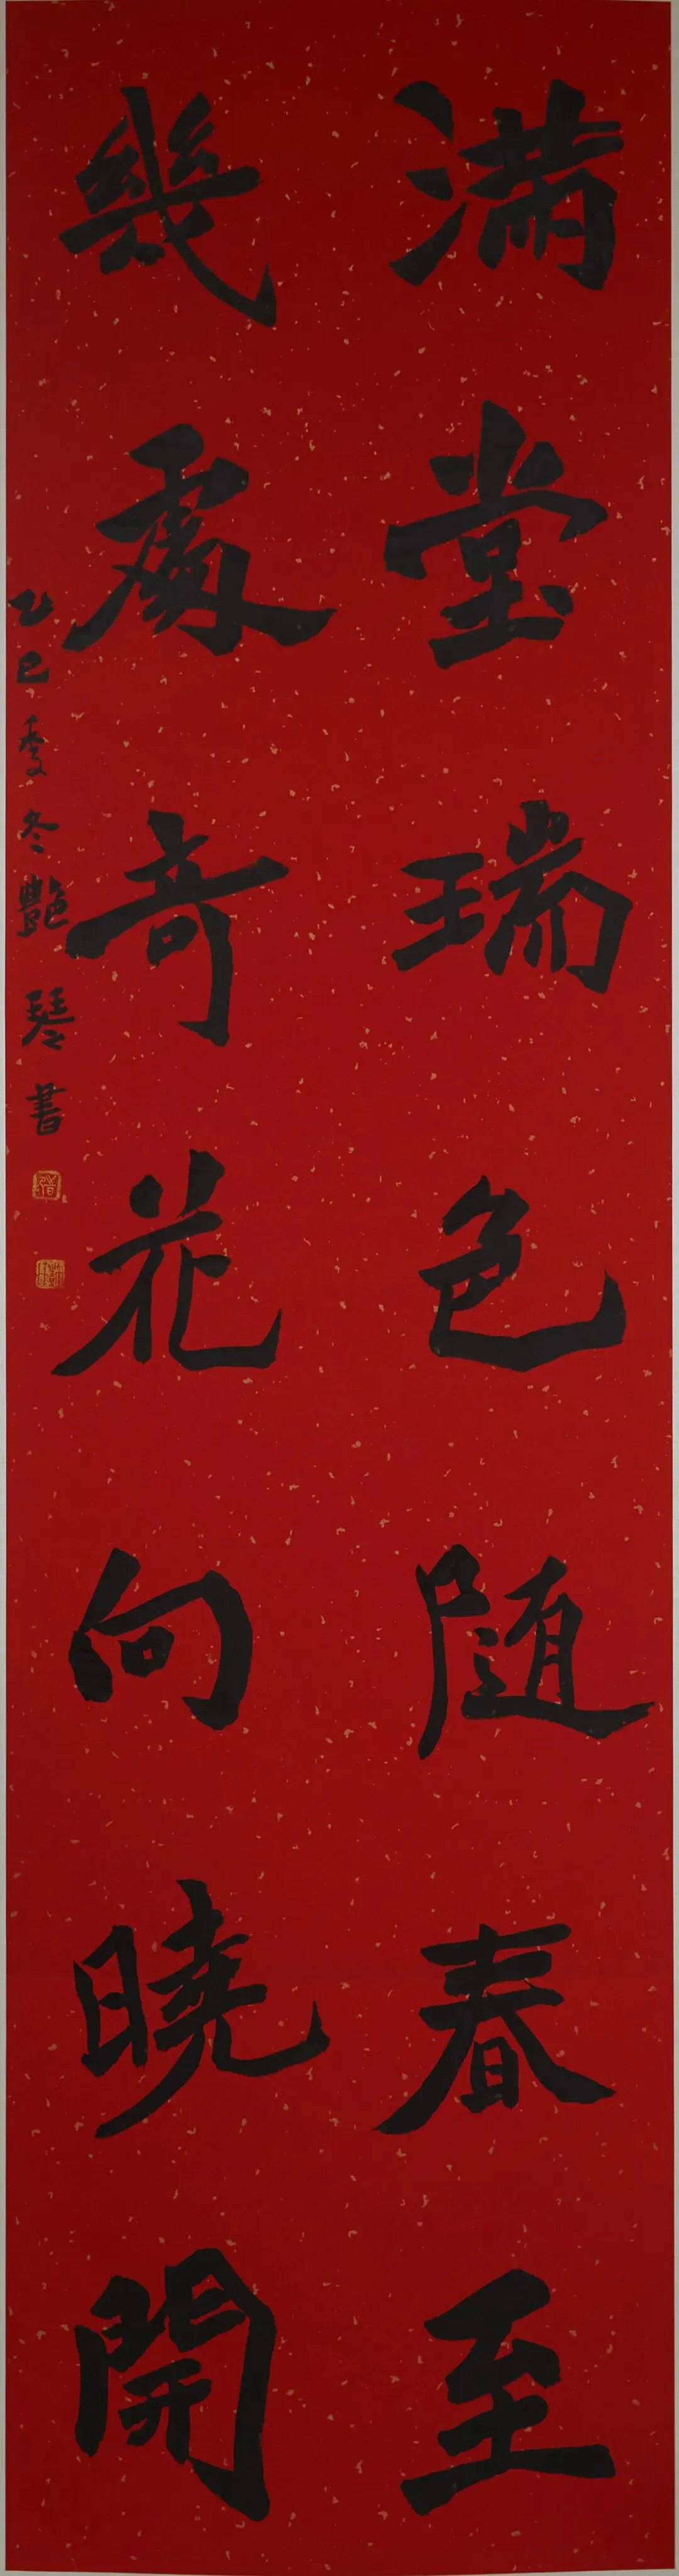 满堂瑞色随春至
幾處奇花向曉開
乙巳季冬艶琴書